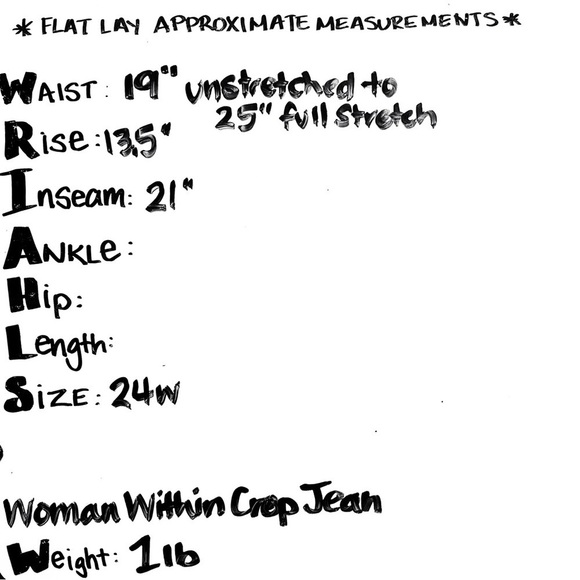 * FLAT LAY APPROXIMATE MEASUREMENTS *
WAIST: 19" unstretched to
25" full stretch
Rise: 13.5"
Inseam: 21"
ANKLE:
Hip:
Length:
SIZE: 24W
Woman Within Crop Jean
Weight: 1lb